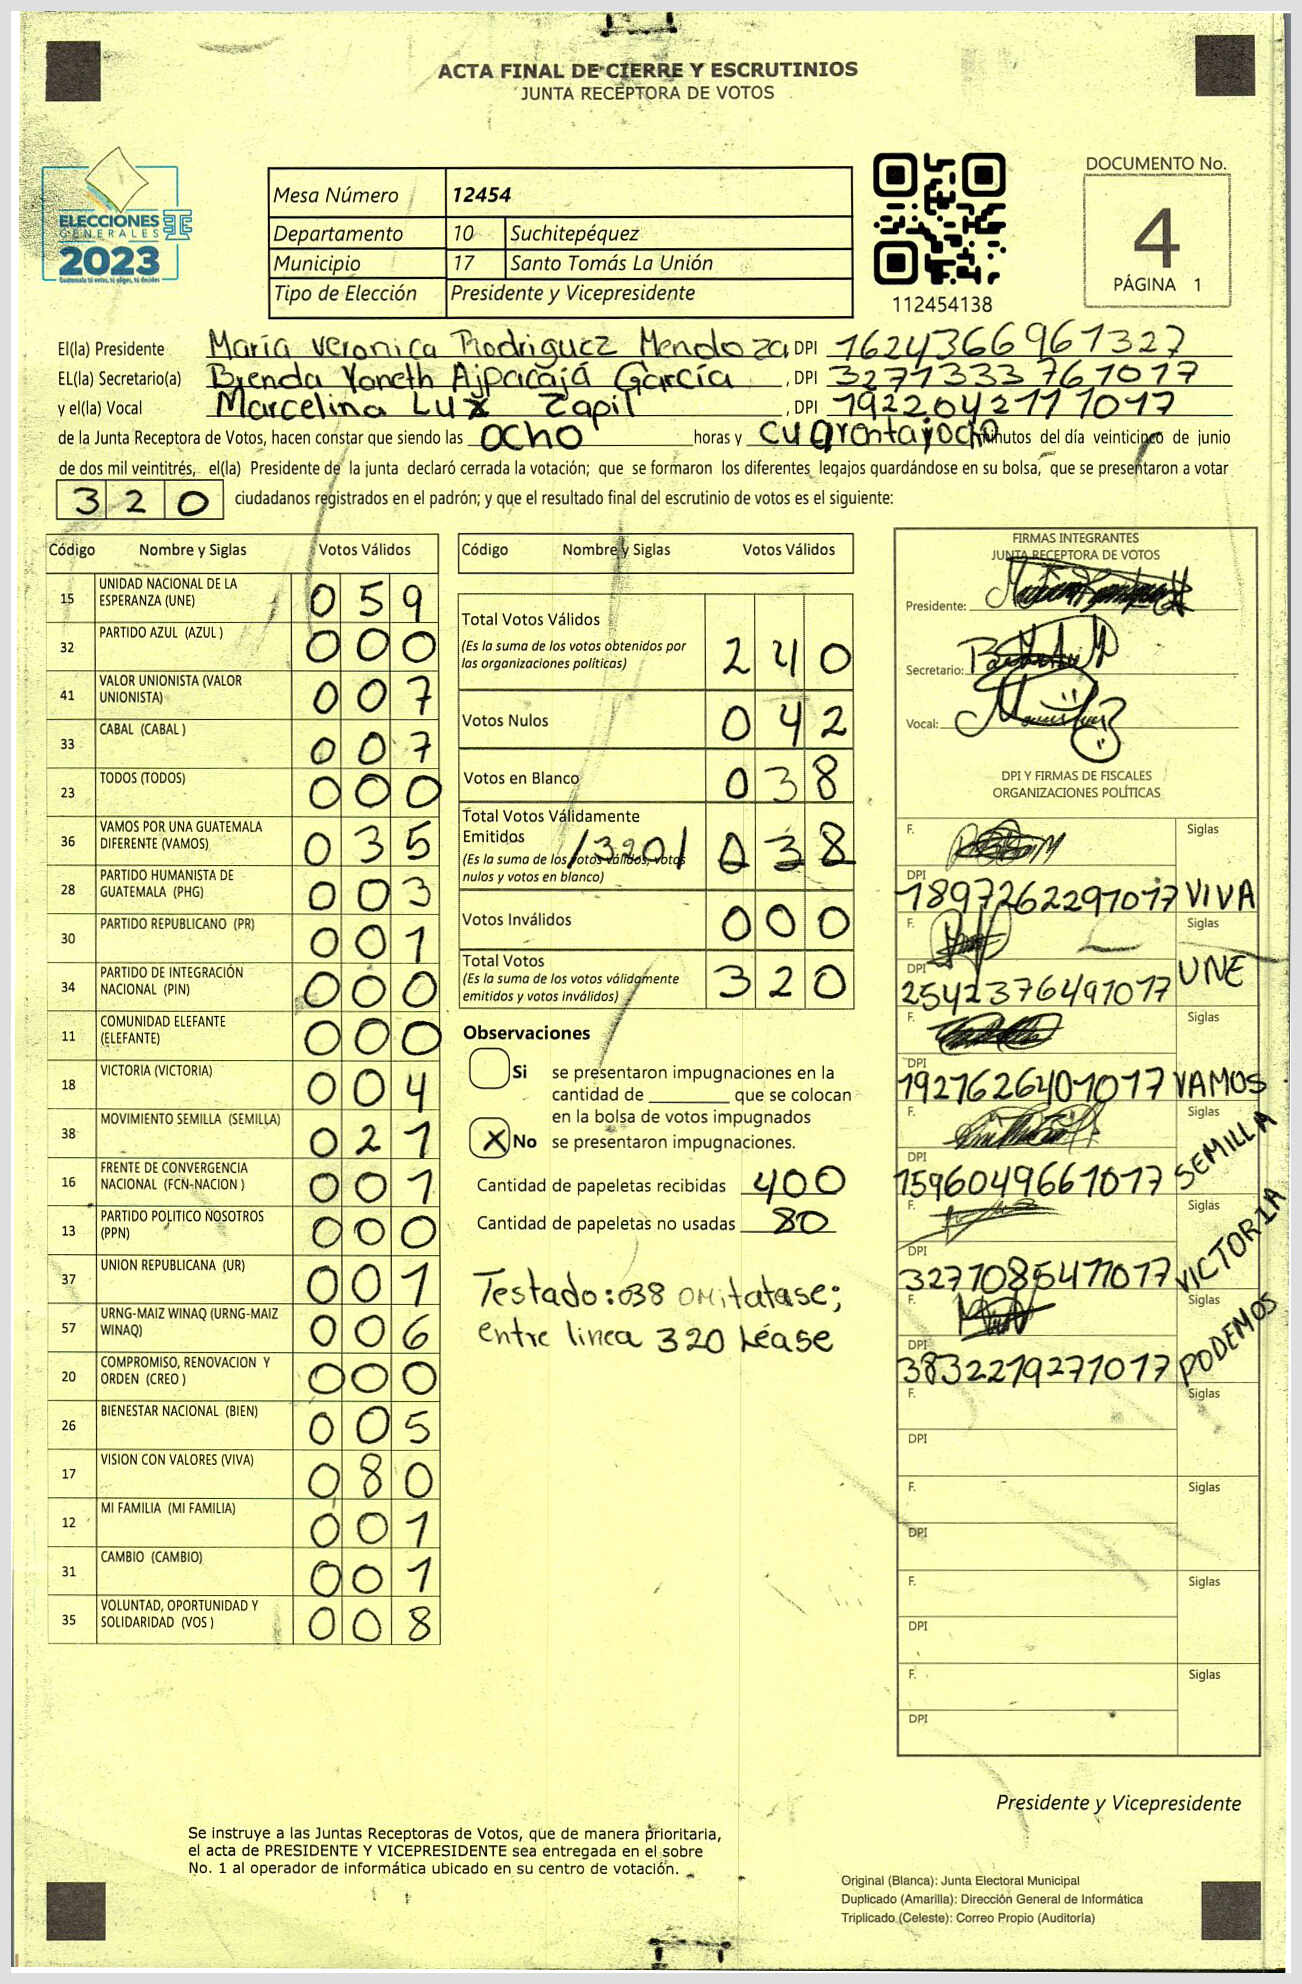 ACTA FINAL DE CIERRE Y ESCRUTINIOS
JUNTA RECEPTORA DE VOTOS
ELECCIONES
GENERALES
2023
Guatemala tú votas, tú eliges, tú decides
Mesa Número 12454
Departamento 10 Suchitepéquez
Municipio 17 Santo Tomás La Unión
Tipo de Elección Presidente y Vicepresidente
112454138
DOCUMENTO No.
4
PÁGINA 1
El(la) Presidente María Veronica Rodriguez Mendoza DPI 1624366961327
EL(la) Secretario(a) Brenda Yaneth Ajpacajá García , DPI 3271333761017
y el(la) Vocal Marcelina Lux Zapil , DPI 1922042111017
de la Junta Receptora de Votos, hacen constar que siendo las ocho horas y cuarentaiocho minutos del día veinticinco de junio
de dos mil veintitrés, el(la) Presidente de la junta declaró cerrada la votación; que se formaron los diferentes legajos guardándose en su bolsa, que se presentaron a votar
320 ciudadanos registrados en el padrón; y que el resultado final del escrutinio de votos es el siguiente:
Código Nombre y Siglas Votos Válidos
15 UNIDAD NACIONAL DE LA ESPERANZA (UNE) 059
32 PARTIDO AZUL (AZUL ) 000
41 VALOR UNIONISTA (VALOR UNIONISTA) 007
33 CABAL (CABAL ) 007
23 TODOS (TODOS) 000
36 VAMOS POR UNA GUATEMALA DIFERENTE (VAMOS) 035
28 PARTIDO HUMANISTA DE GUATEMALA (PHG) 003
30 PARTIDO REPUBLICANO (PR) 001
34 PARTIDO DE INTEGRACIÓN NACIONAL (PIN) 000
11 COMUNIDAD ELEFANTE (ELEFANTE) 000
18 VICTORIA (VICTORIA) 004
38 MOVIMIENTO SEMILLA (SEMILLA) 021
16 FRENTE DE CONVERGENCIA NACIONAL (FCN-NACION ) 001
13 PARTIDO POLITICO NOSOTROS (PPN) 000
37 UNION REPUBLICANA (UR) 001
57 URNG-MAIZ WINAQ (URNG-MAIZ WINAQ) 006
20 COMPROMISO, RENOVACION Y ORDEN (CREO ) 000
26 BIENESTAR NACIONAL (BIEN) 005
17 VISION CON VALORES (VIVA) 080
12 MI FAMILIA (MI FAMILIA) 001
31 CAMBIO (CAMBIO) 001
35 VOLUNTAD, OPORTUNIDAD Y SOLIDARIDAD (VOS ) 008
Código Nombre y Siglas Votos Válidos
Total Votos Válidos
(Es la suma de los votos obtenidos por
las organizaciones políticas) 240
Votos Nulos 042
Votos en Blanco 038
Total Votos Válidamente
Emitidos /320/ 038
(Es la suma de los votos válidos, votos
nulos y votos en blanco)
Votos Inválidos 000
Total Votos
(Es la suma de los votos válidamente
emitidos y votos inválidos) 320
Observaciones
Si se presentaron impugnaciones en la
cantidad de ________ que se colocan
en la bolsa de votos impugnados
X No se presentaron impugnaciones.
Cantidad de papeletas recibidas 400
Cantidad de papeletas no usadas 80
Testado: 038 omitatase;
entre linea 320 Léase
FIRMAS INTEGRANTES
JUNTA RECEPTORA DE VOTOS
Presidente:
Secretario:
Vocal:
DPI Y FIRMAS DE FISCALES
ORGANIZACIONES POLÍTICAS
F. Siglas
DPI 1897262291017 VIVA
F. Siglas
DPI 2542376491017 UNE
F. Siglas
DPI 1927626401017 VAMOS
F. Siglas
DPI 1596049661017 SEMILLA
F. Siglas
DPI 3271085411017 VICTORIA
F. Siglas
DPI 3832219271017 PODEMOS
F. Siglas
DPI
F. Siglas
DPI
F. Siglas
DPI
F. Siglas
DPI
Presidente y Vicepresidente
Se instruye a las Juntas Receptoras de Votos, que de manera prioritaria,
el acta de PRESIDENTE Y VICEPRESIDENTE sea entregada en el sobre
No. 1 al operador de informática ubicado en su centro de votación.
Original (Blanca): Junta Electoral Municipal
Duplicado (Amarilla): Dirección General de Informática
Triplicado (Celeste): Correo Propio (Auditoría)